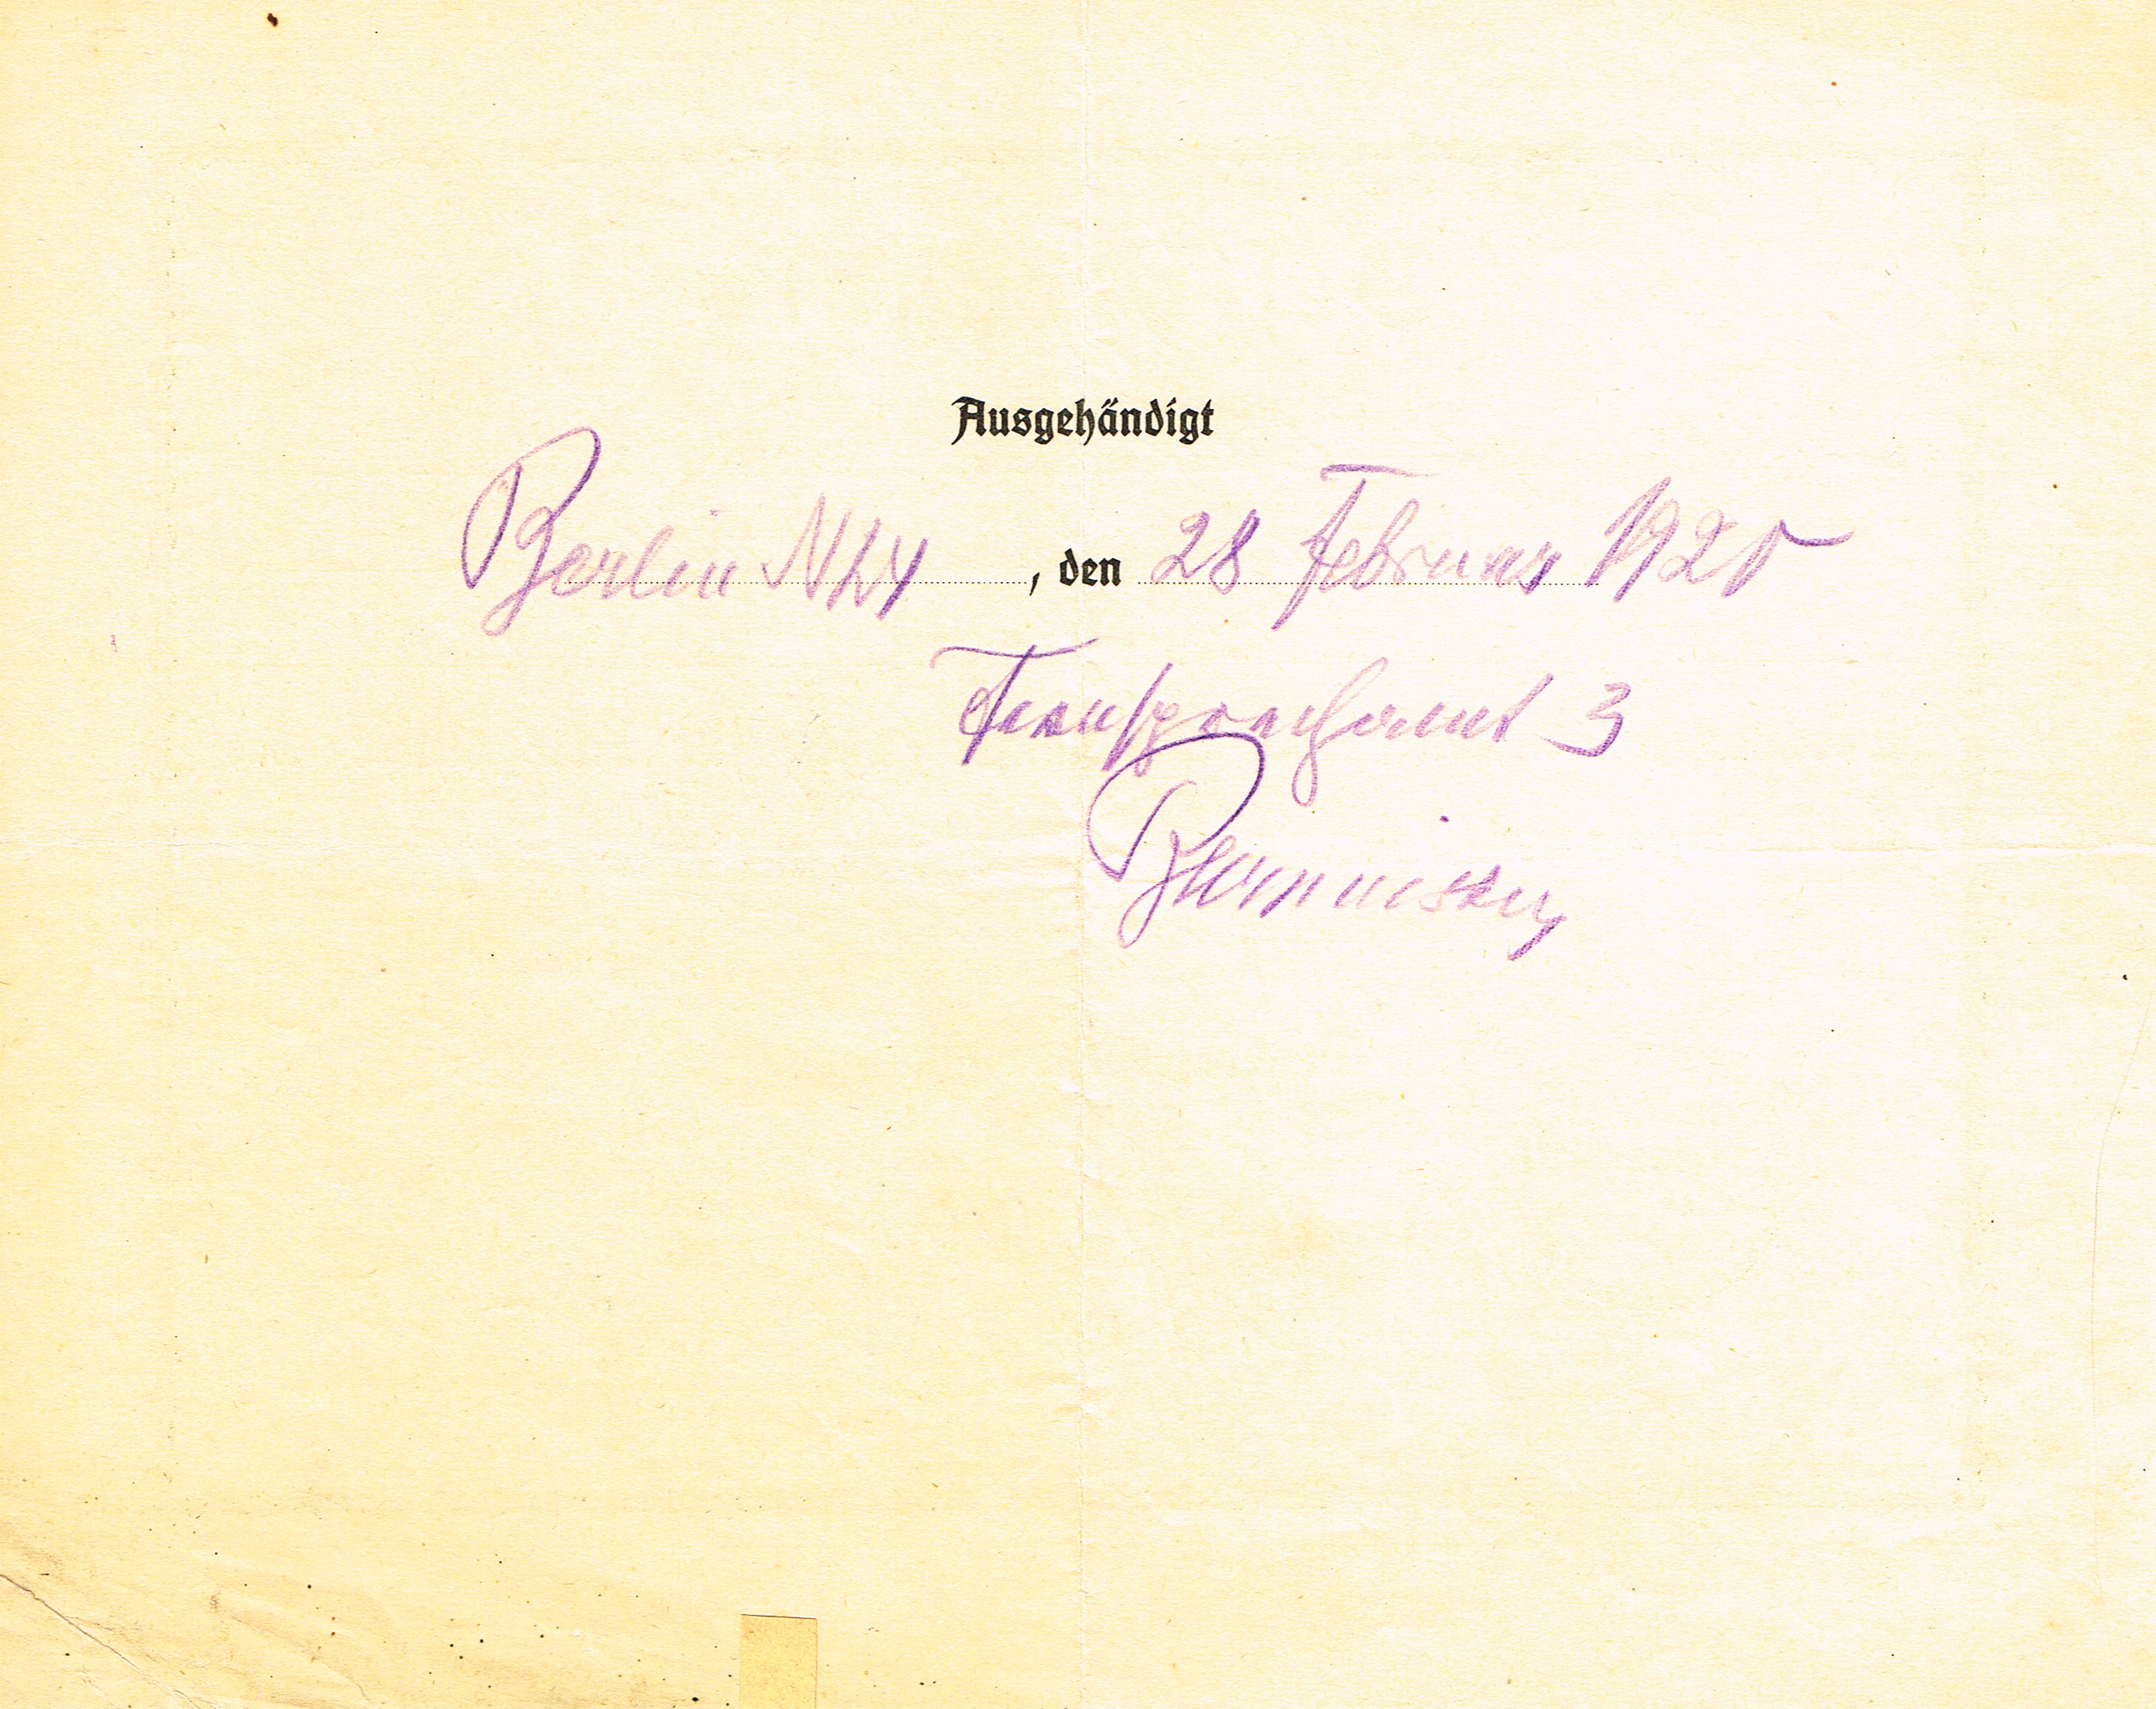 Ausgehändigt
Berlin N24, den 28 Februar 1925
Fernsprechamt 3